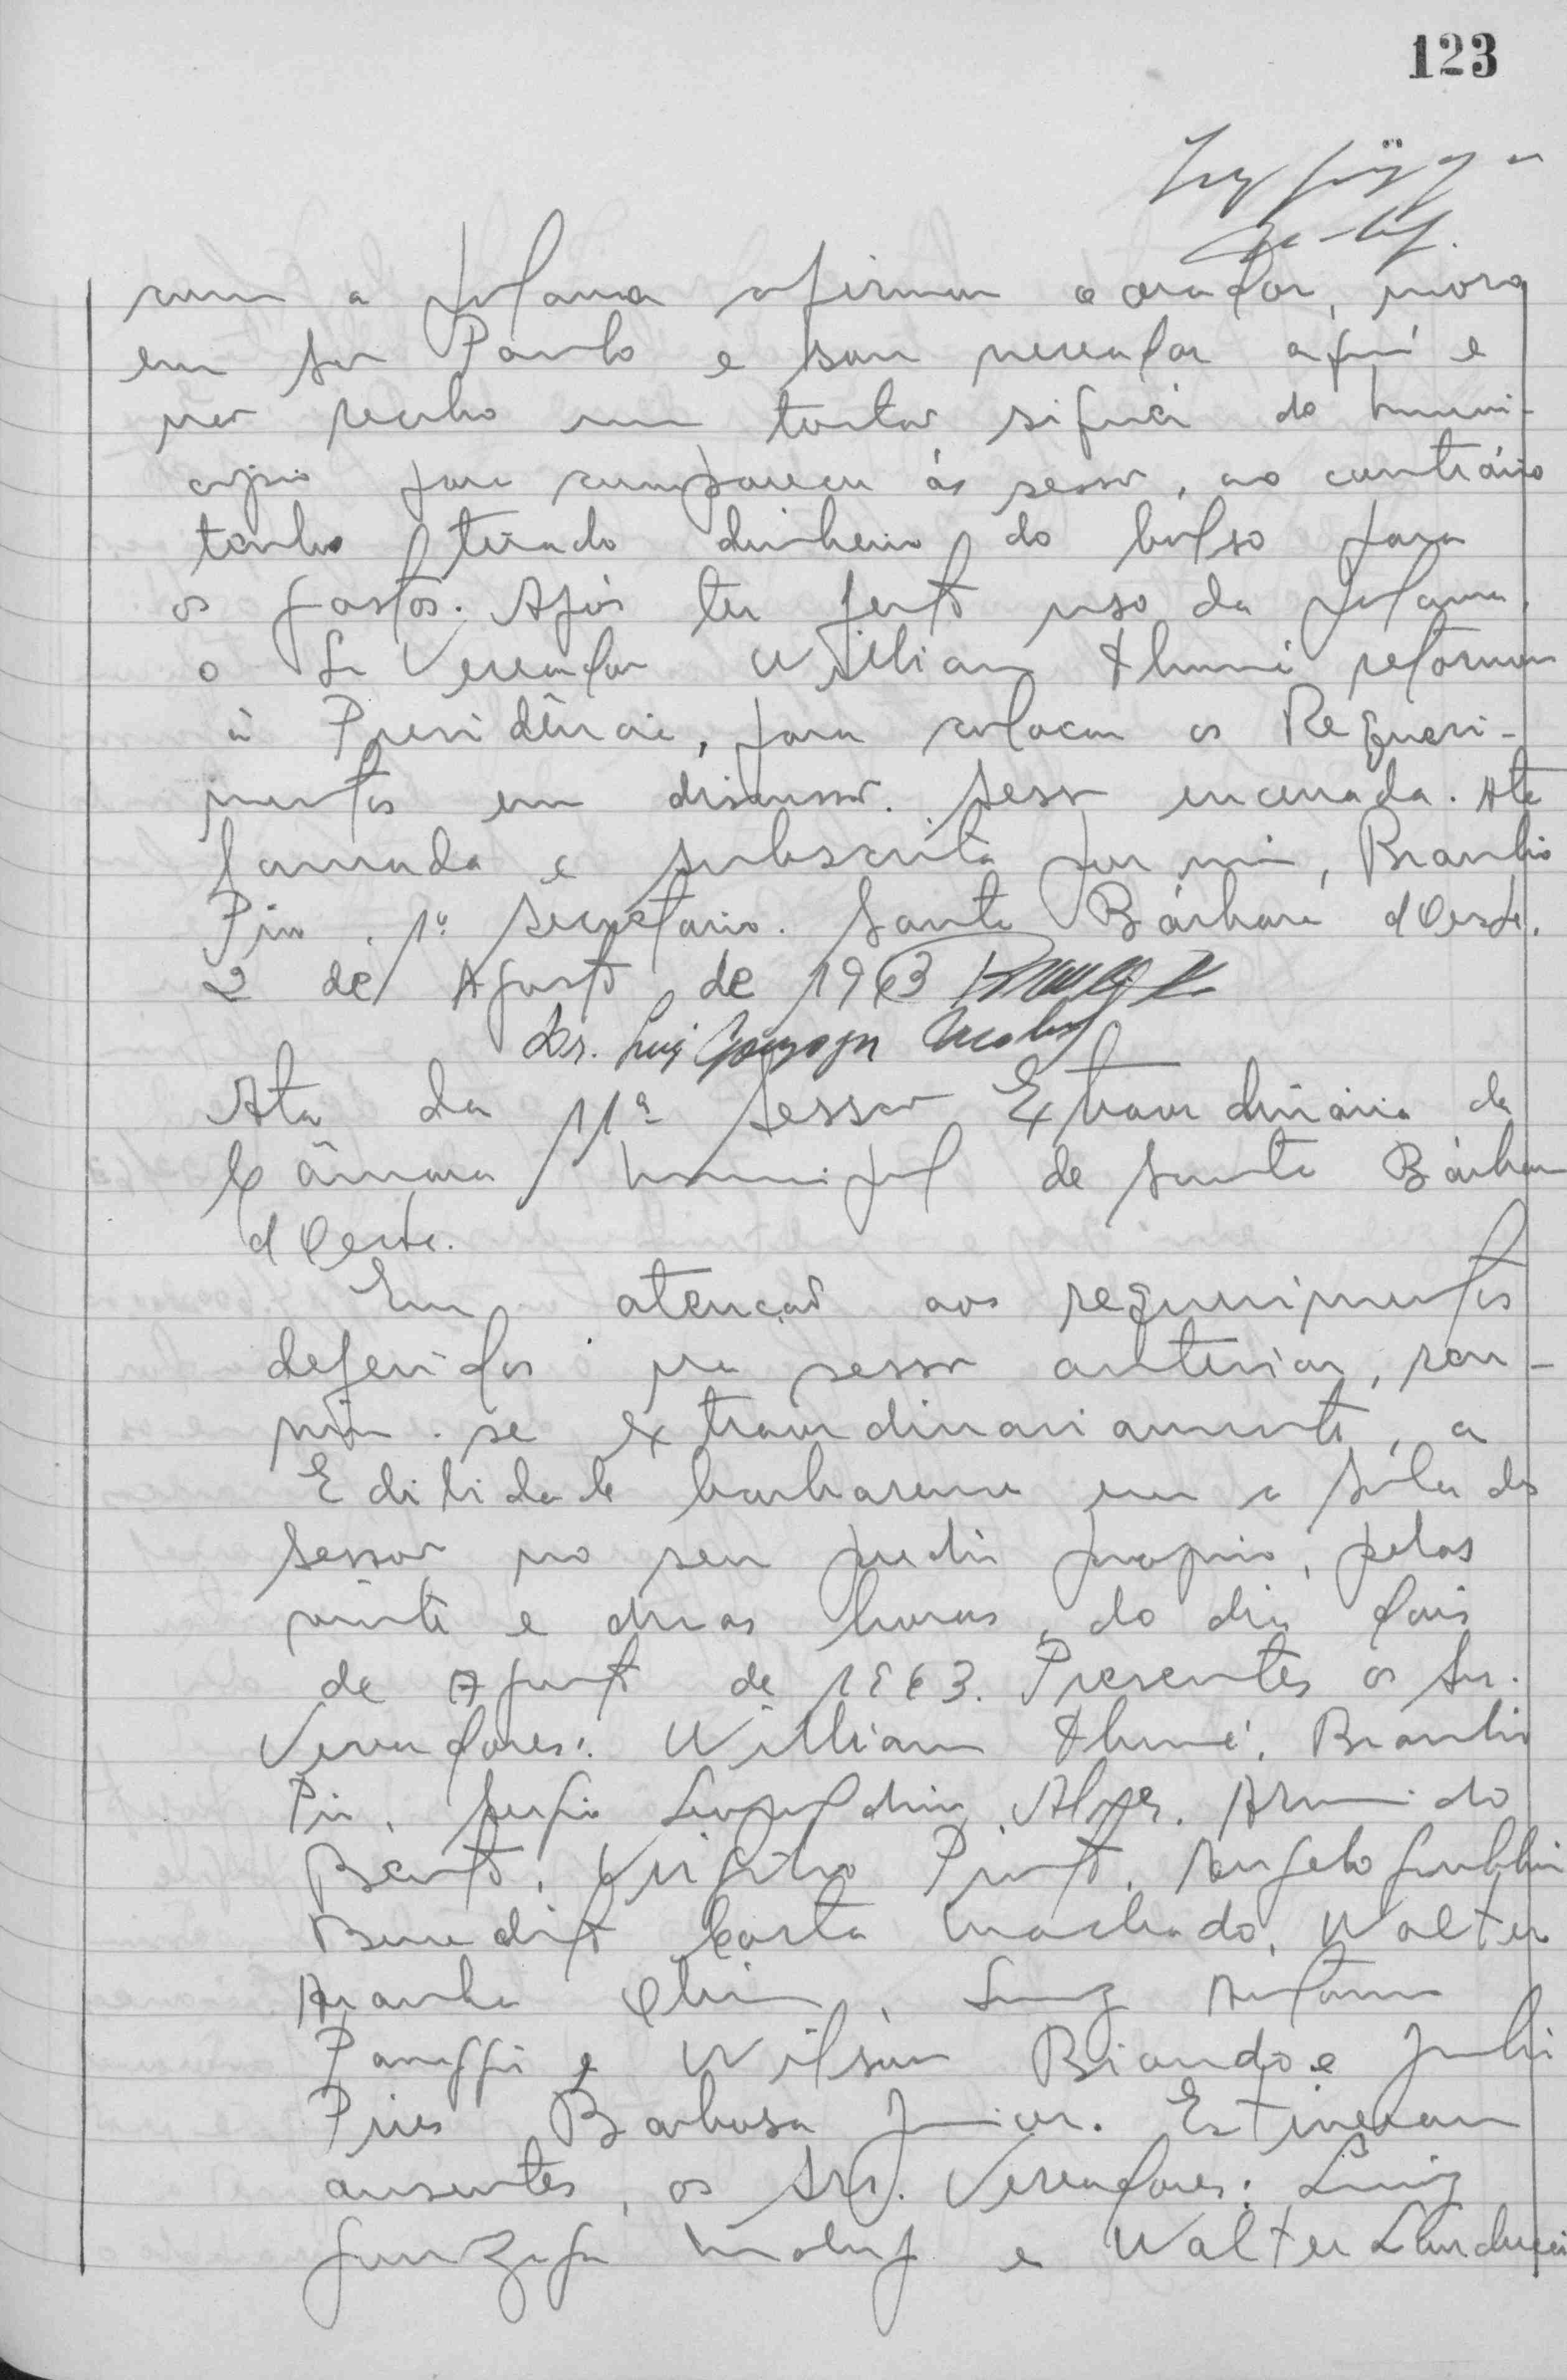 123
com a palavra afirmou o orador, moro
em São Paulo e sou vereador aqui e
não recebo um tostão siquér do muni-
cipio para comparecer ás sessão, ao contrário
tenho tirado dinheiro do bolso para
os gastos. Após ter feito uso da palavra,
o Sr Vereador William retornou
à Presidência, para colocar os Requeri-
mentos em discussão. Sessão encerrada. Ata
lavrada e subscrita por mim, Braulio
Pio, 1º Secretario. Santa Bárbara d'Oeste,
2 de Agosto de 1963
Dr. Luiz Gonzaga Maluf
Ata da 11ª Sessão Extraordinária da
Câmara Municipal de Santa Bárbara
d'Oeste.
Em atenção aos requerimentos
deferidos na sessão anterior, reu-
niu-se extraordinariamente, a
Edilidade barbarense em a sala das
sessão no seu predio proprio, pelas
vinte e duas horas, do dia dois
de Agosto de 1963. Presentes os Srs.
Vereadores: William, Braulio
Pio, Sergio Leopoldino Alves, Armindo
Bento, Virgilio Pinto, Angelo
Benedito Costa Machado, Walter
Aranha, Luiz Antonio
Panaggio e Wilson Biando e Julio
Pires Barbosa Junior. Estiveram
ausentes, os Srs. Vereadores: Luiz
Gonzaga Maluf e Walter Landucci